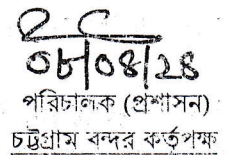 ০৮/০৪/২৪
পরিচালক (প্রশাসন)
চট্টগ্রাম বন্দর কর্তৃপক্ষ